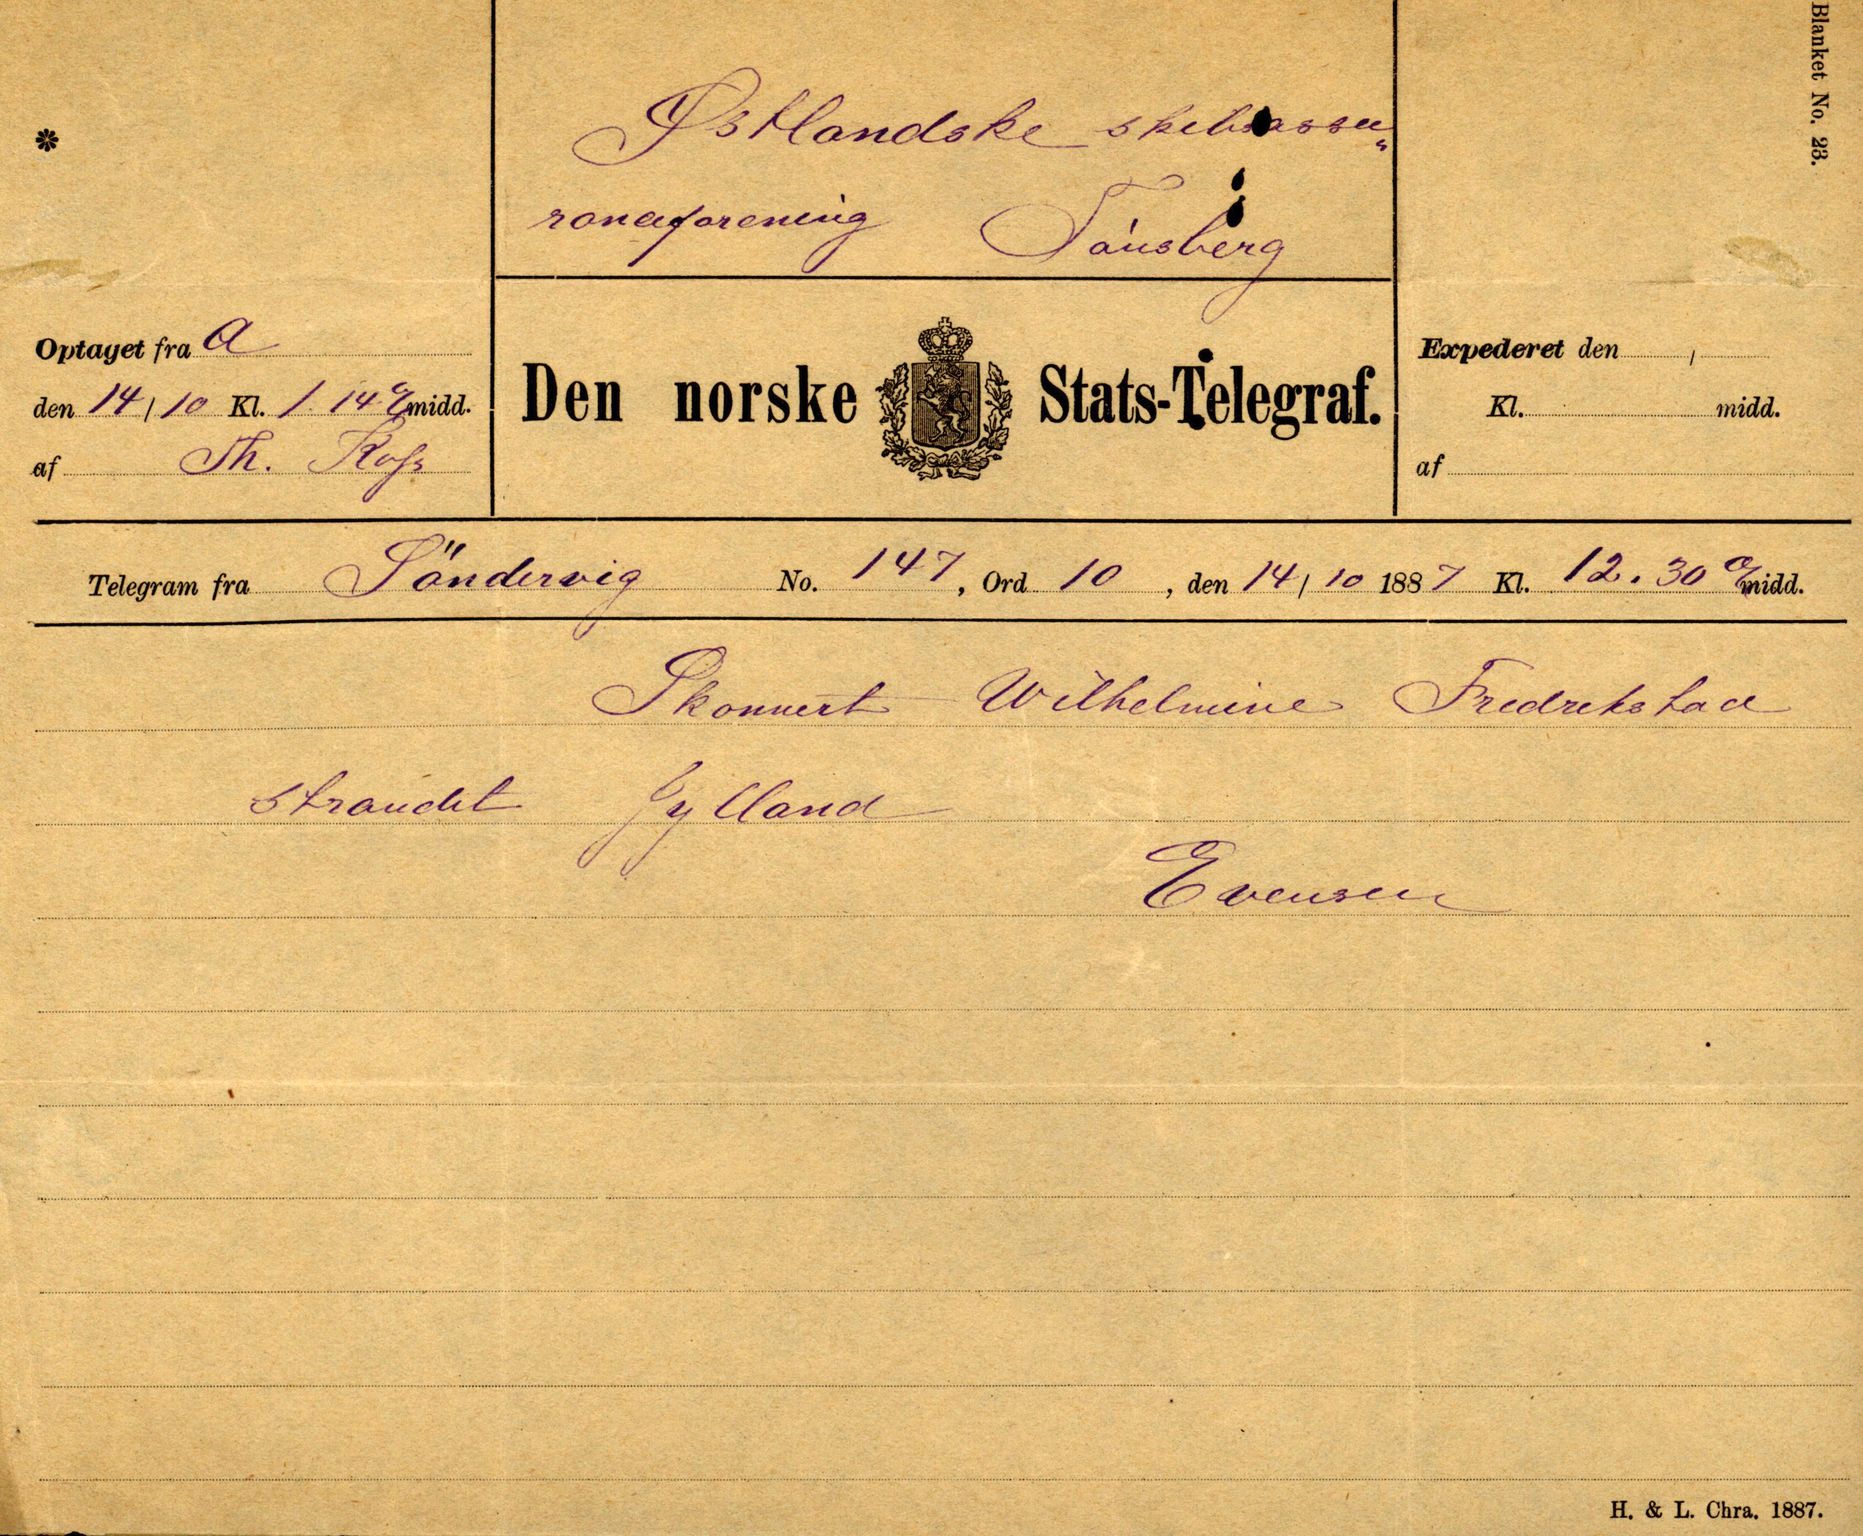 Blanket No. 23.
*
Østlandske skibsassu„
ranceforening Tönsberg
Optaget fra A
den 14/10 Kl. 1.14 e/midd.
af Th.
Den norske Stats-Telegraf.
Expederet den /
Kl. midd.
af
Telegram fra Söndervig No. 147, Ord 10, den 14/10 1887 Kl. 12.30 e/midd.
Skonnert Wilhelmine Fredrikstad
strandet Jylland
Evensen
H. & L. Chra. 1887.